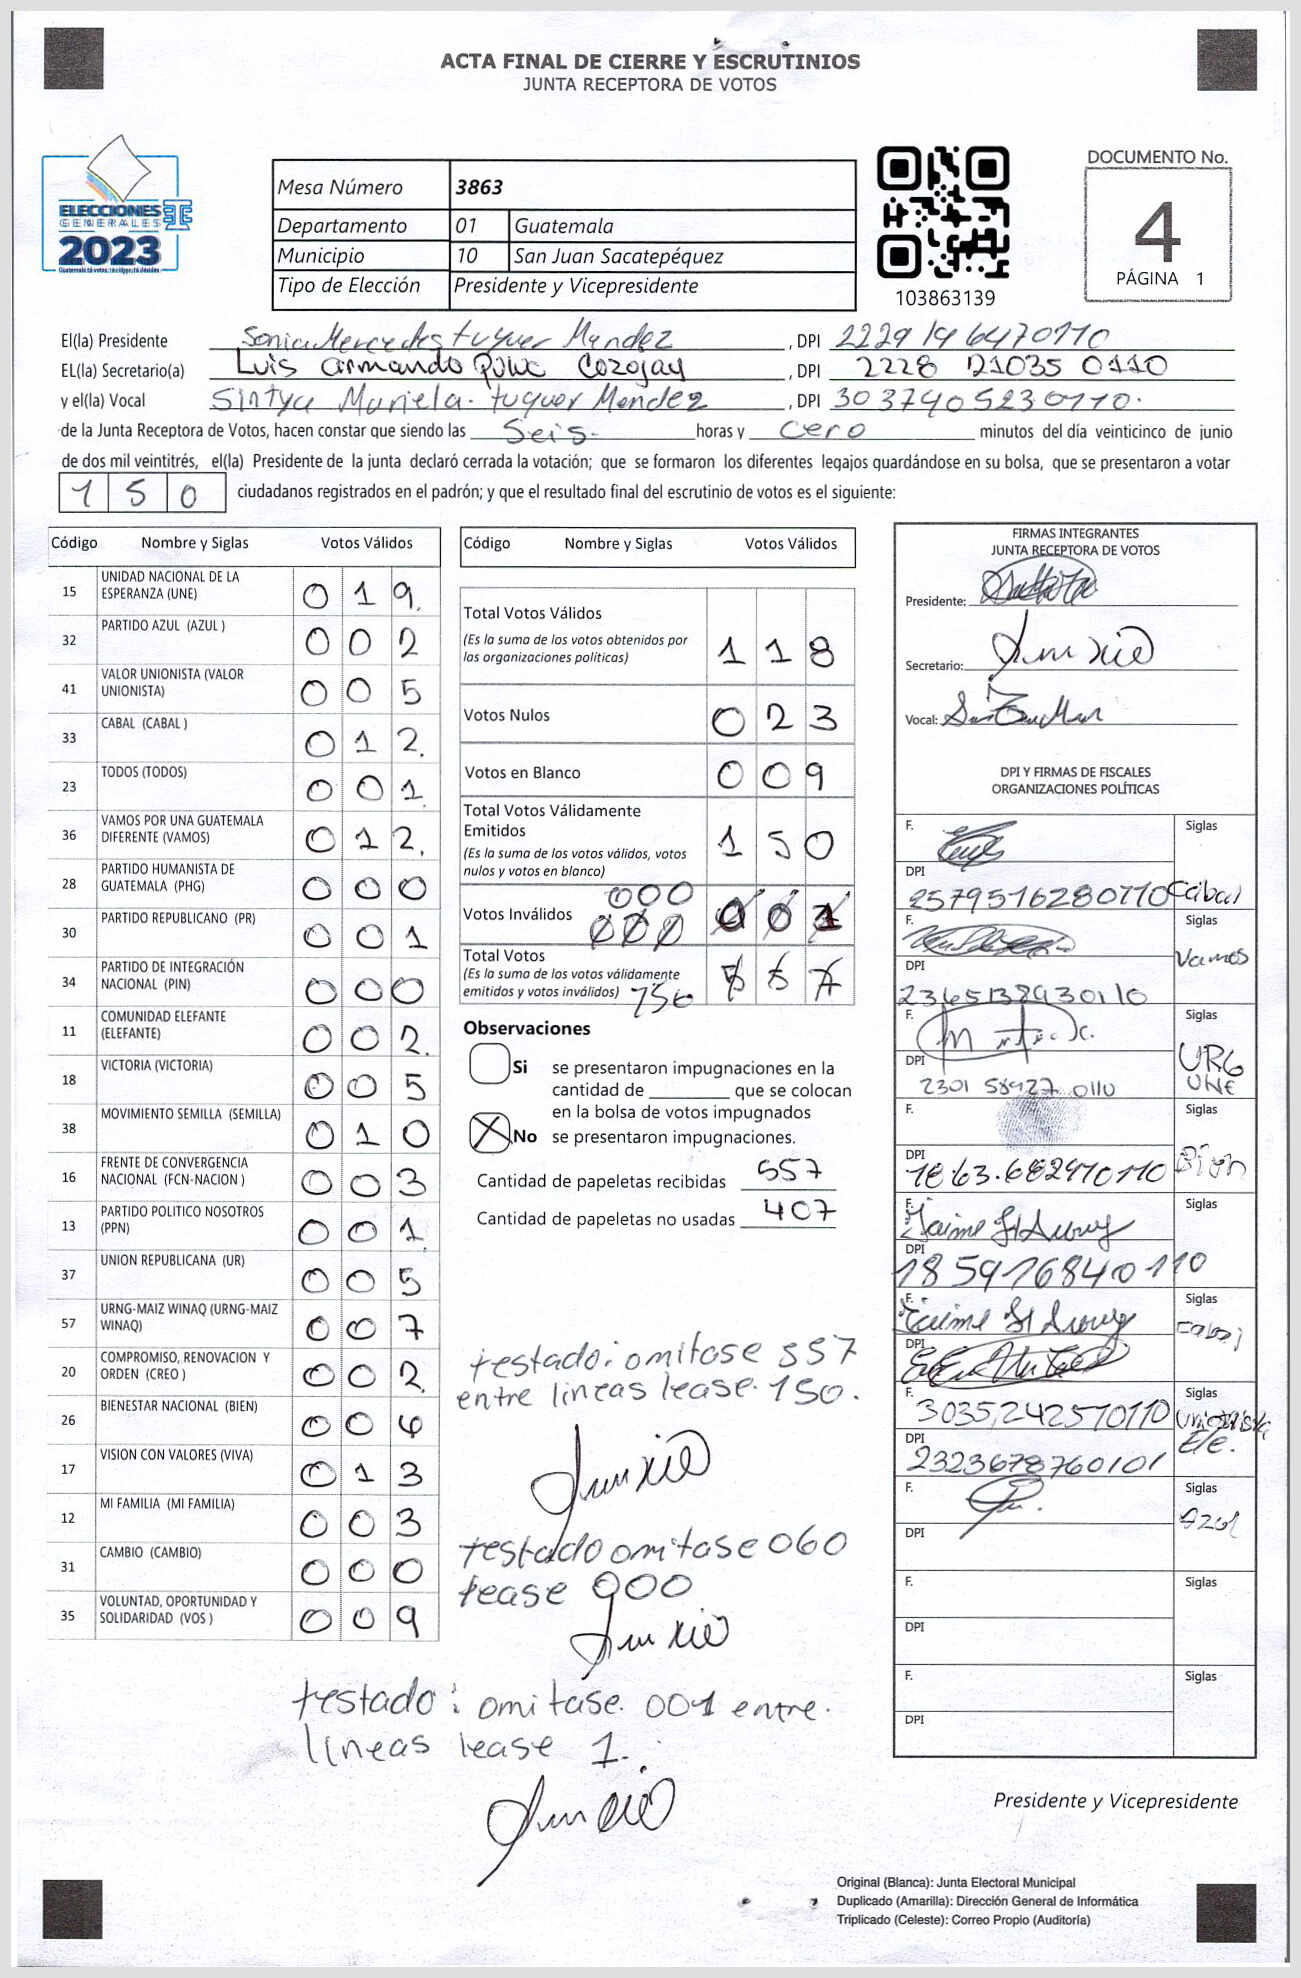 ACTA FINAL DE CIERRE Y ESCRUTINIOS
JUNTA RECEPTORA DE VOTOS
ELECCIONES
GENERALES
2023
Mesa Número 3863
Departamento 01 Guatemala
Municipio 10 San Juan Sacatepéquez
Tipo de Elección Presidente y Vicepresidente
103863139
DOCUMENTO No.
4
PÁGINA 1
El(la) Presidente Sonia Mercedes tuquer Mendez, DPI
EL(la) Secretario(a) Luis armando, DPI 2228 21035 0110
y el(la) Vocal Sintya Mariela tuquer Mendez, DPI 3037405230110.
de la Junta Receptora de Votos, hacen constar que siendo las Seis horas y cero minutos del día veinticinco de junio
de dos mil veintitrés, el(la) Presidente de la junta declaró cerrada la votación; que se formaron los diferentes legajos guardándose en su bolsa, que se presentaron a votar
1 5 0 ciudadanos registrados en el padrón; y que el resultado final del escrutinio de votos es el siguiente:
Código Nombre y Siglas Votos Válidos
15 UNIDAD NACIONAL DE LA
ESPERANZA (UNE) 0 1 9
32 PARTIDO AZUL (AZUL ) 0 0 2
41 VALOR UNIONISTA (VALOR
UNIONISTA) 0 0 5
33 CABAL (CABAL ) 0 1 2
23 TODOS (TODOS) 0 0 1
36 VAMOS POR UNA GUATEMALA
DIFERENTE (VAMOS) 0 1 2
28 PARTIDO HUMANISTA DE
GUATEMALA (PHG) 0 0 0
30 PARTIDO REPUBLICANO (PR) 0 0 1
34 PARTIDO DE INTEGRACIÓN
NACIONAL (PIN) 0 0 0
11 COMUNIDAD ELEFANTE
(ELEFANTE) 0 0 2
18 VICTORIA (VICTORIA) 0 0 5
38 MOVIMIENTO SEMILLA (SEMILLA) 0 1 0
16 FRENTE DE CONVERGENCIA
NACIONAL (FCN-NACION ) 0 0 3
13 PARTIDO POLITICO NOSOTROS
(PPN) 0 0 1
37 UNION REPUBLICANA (UR) 0 0 5
57 URNG-MAIZ WINAQ (URNG-MAIZ
WINAQ) 0 0 7
20 COMPROMISO, RENOVACION Y
ORDEN (CREO ) 0 0 2
26 BIENESTAR NACIONAL (BIEN) 0 0
17 VISION CON VALORES (VIVA) 0 1 3
12 MI FAMILIA (MI FAMILIA) 0 0 3
31 CAMBIO (CAMBIO) 0 0 0
35 VOLUNTAD, OPORTUNIDAD Y
SOLIDARIDAD (VOS ) 0 0 9
Código Nombre y Siglas Votos Válidos
Total Votos Válidos
(Es la suma de los votos obtenidos por
las organizaciones politicas) 1 1 8
Votos Nulos 0 2 3
Votos en Blanco 0 0 9
Total Votos Válidamente
Emitidos
(Es la suma de los votos válidos, votos
nulos y votos en blanco) 1 5 0
000
Votos Inválidos 000 0 0 1
Total Votos
(Es la suma de los votos válidamente
emitidos y votos inválidos) 150 5 5 7
Observaciones
Si se presentaron impugnaciones en la
cantidad de ________ que se colocan
en la bolsa de votos impugnados
No se presentaron impugnaciones.
Cantidad de papeletas recibidas 557
Cantidad de papeletas no usadas 407
testado: omitase 557
entre lineas lease 150.
testado omitase 060
lease 000
testado: omitase. 001 entre.
lineas lease 1.
FIRMAS INTEGRANTES
JUNTA RECEPTORA DE VOTOS
Presidente:
Secretario:
Vocal:
DPI Y FIRMAS DE FISCALES
ORGANIZACIONES POLÍTICAS
F. Siglas
DPI 2579516280110 Cabal
F. Siglas
Vamos
DPI
F. Siglas
DPI URG
UNE
F. Siglas
DPI
F. Jaime Siglas
DPI 1859176840110
F. Jaime Siglas
DPI
F. Siglas
3035,242570110
DPI 2323678760101
F. Siglas
Azul
DPI
F. Siglas
DPI
F. Siglas
DPI
Presidente y Vicepresidente
Original (Blanca): Junta Electoral Municipal
Duplicado (Amarilla): Dirección General de Informática
Triplicado (Celeste): Correo Propio (Auditoría)